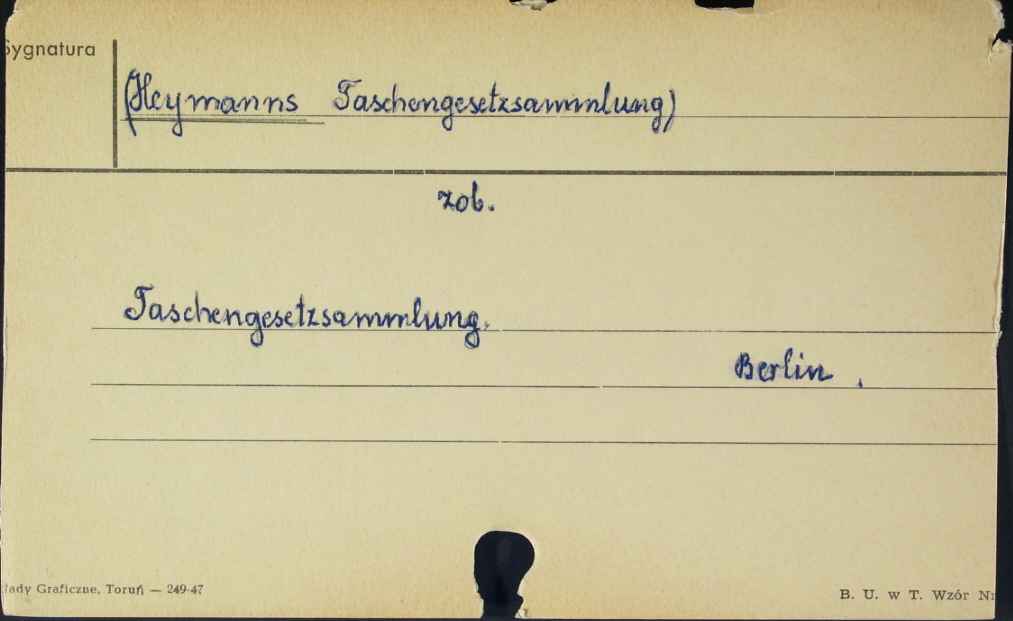 Sygnatura
(Heymanns Taschengesetzsammlung)
zob.
Taschengesetzsammlung.
Berlin .
łady Graficzne, Toruń — 249-47
B. U. w T. Wzór Nr